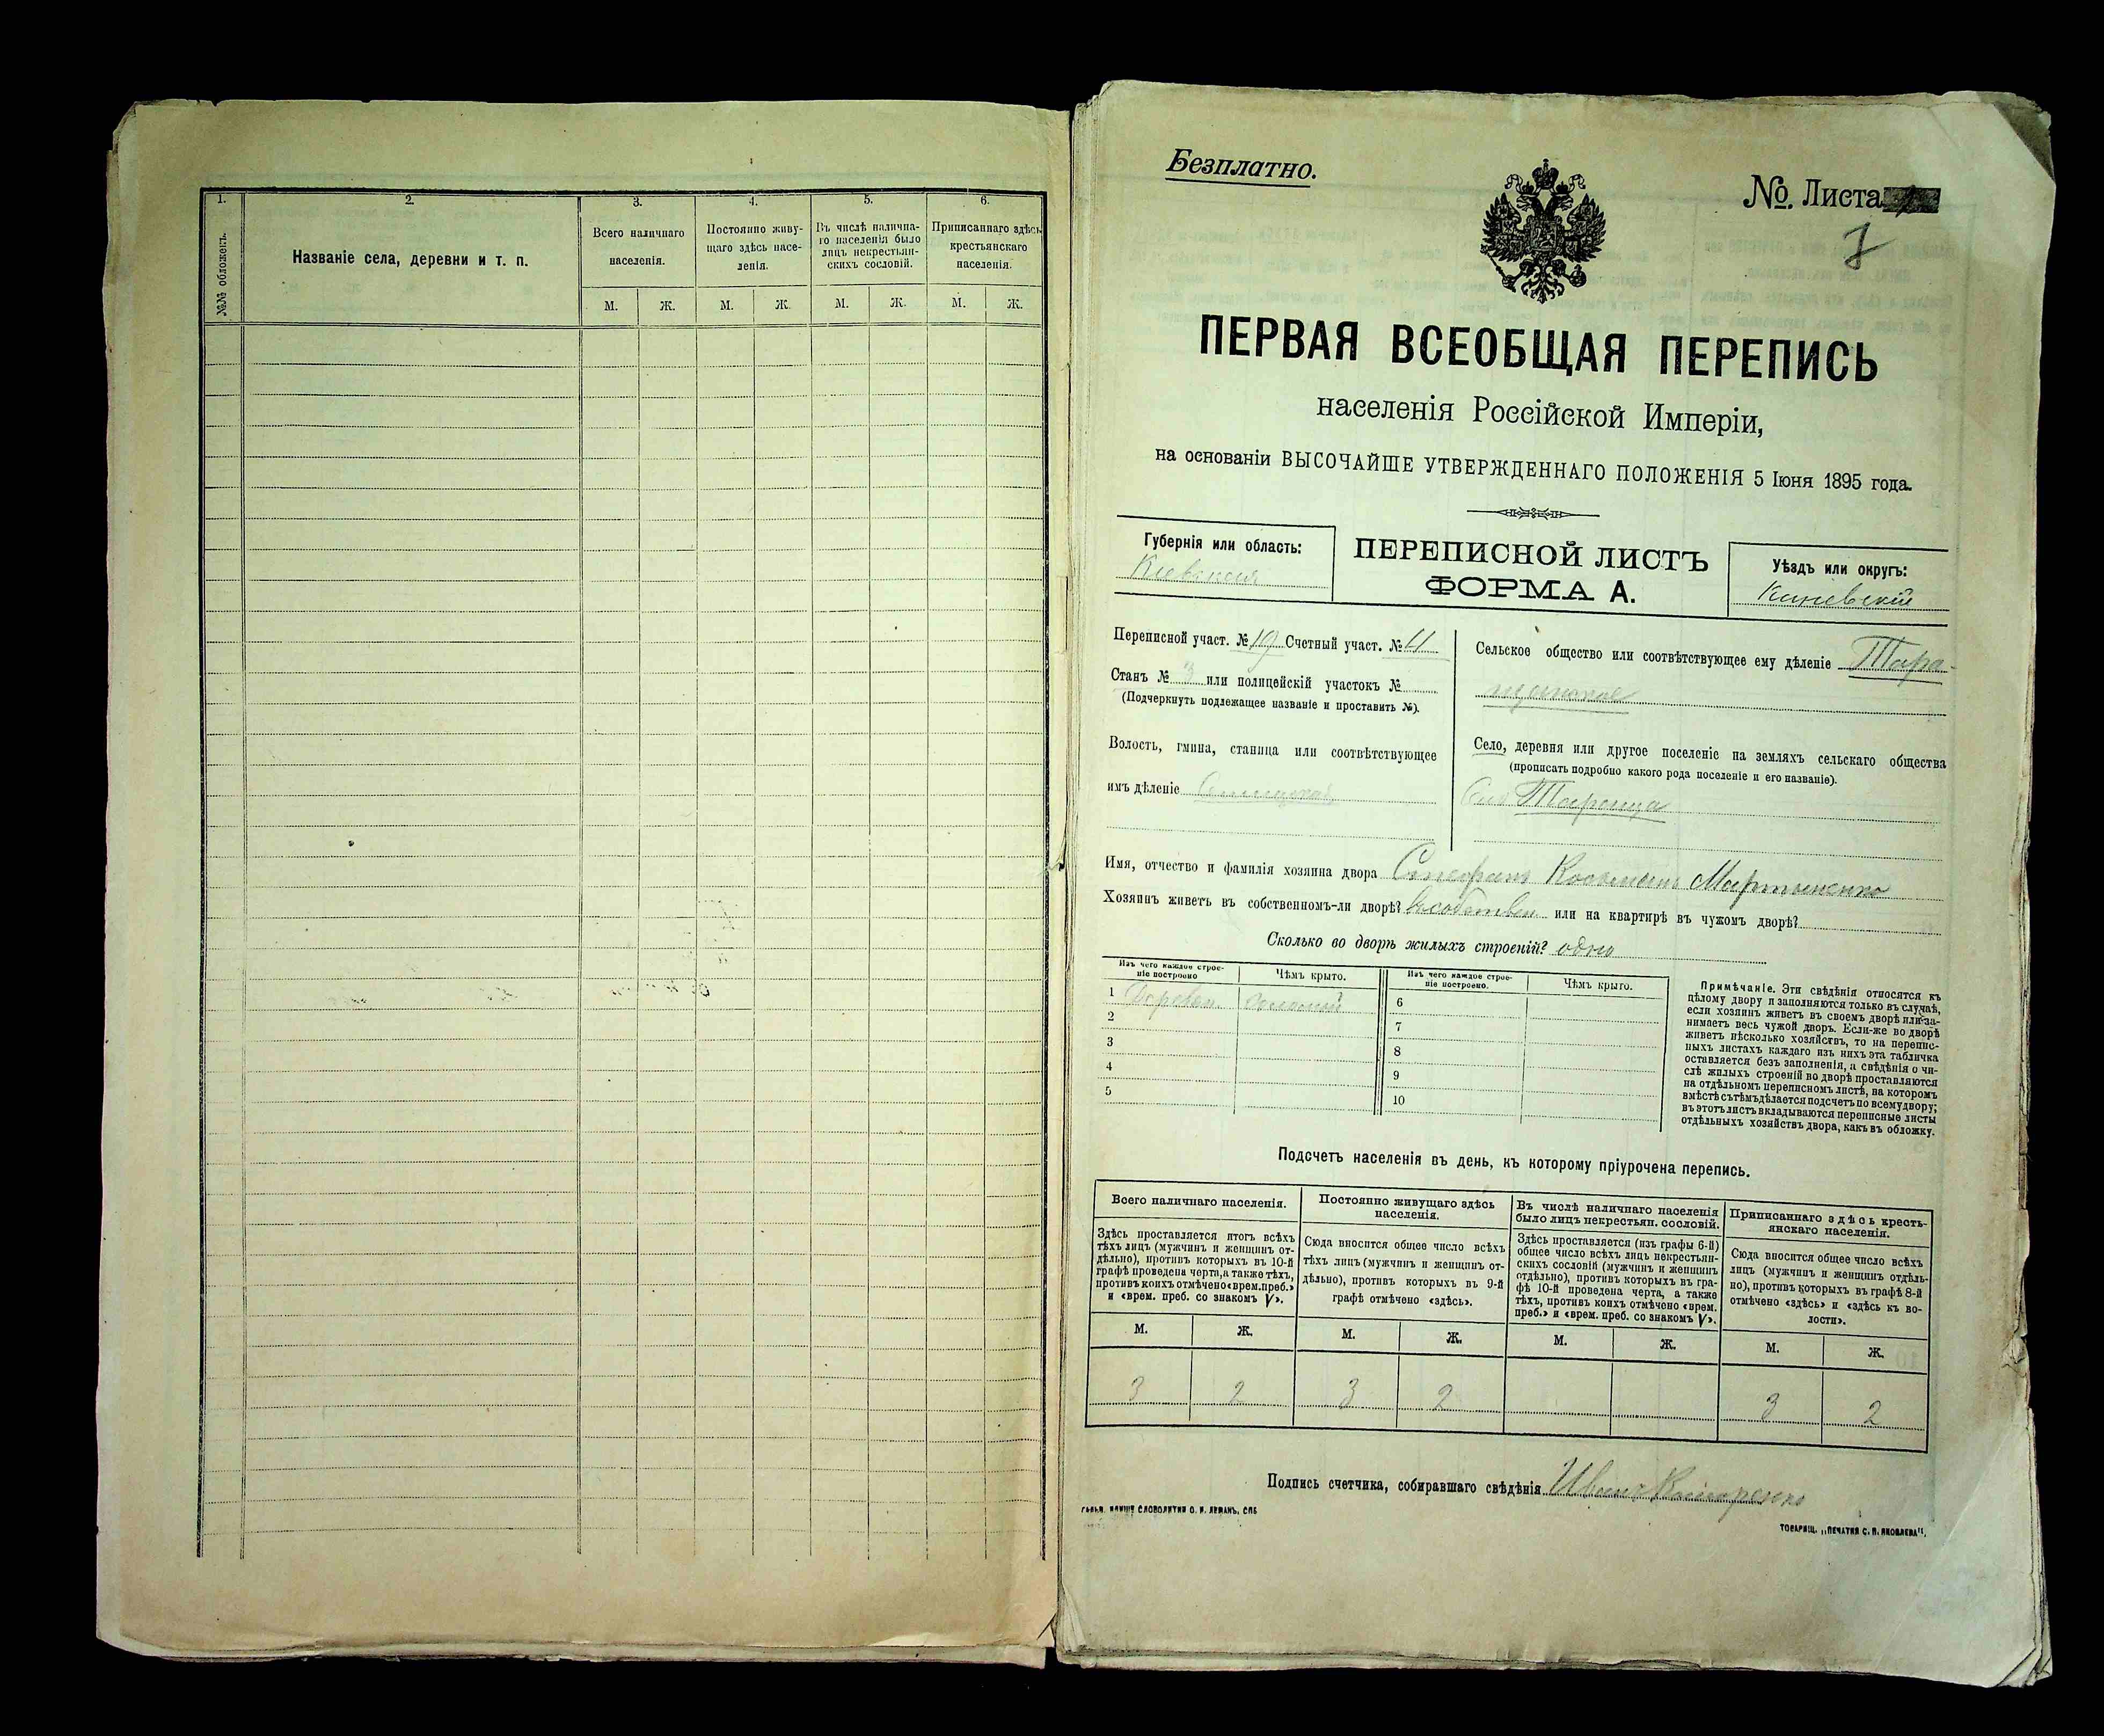 1.
2.
3.
4.
5.
6.
№№ обложекъ.
Названіе села, деревни и т. п.
Всего наличнаго
населенія.
Постоянно живу-
щаго здѣсь насе-
ленія.
Въ числѣ налична-
го населенія было
лицъ некрестьян-
скихъ сословій.
Приписаннаго здѣсь
крестьянскаго
населенія.
М. Ж. М. Ж. М. Ж. М. Ж.
Безплатно.
№. Листа
7
ПЕРВАЯ ВСЕОБЩАЯ ПЕРЕПИСЬ
населенія Россійской Имперіи,
на основаніи ВЫСОЧАЙШЕ УТВЕРЖДЕННАГО ПОЛОЖЕНІЯ 5 Іюня 1895 года.
Губернія или область:
Кіевская
ПЕРЕПИСНОЙ ЛИСТЪ
ФОРМА А.
Уѣздъ или округъ:
Каневскій
Переписной участ. № 19 Счетный участ. № 4
Станъ № 3 или полицейскій участокъ №
(Подчеркнуть подлежащее названіе и проставить №).
Волость, гмина, станица или соотвѣтствующее
имъ дѣленіе
Сельское общество или соотвѣтствующее ему дѣленіе Тара-
щанское
Село, деревня или другое поселеніе на земляхъ сельскаго общества
(прописать подробно какого рода поселеніе и его названіе).
Село Тараща
Имя, отчество и фамилія хозяина двора Стефанъ Мартыненко
Хозяинъ живетъ въ собственномъ-ли дворѣ? въ собствен. или на квартирѣ въ чужомъ дворѣ?
Сколько во дворѣ жилыхъ строеній? одно
Изъ чего каждое строе-
ніе построено
Чѣмъ крыто.
Изъ чего каждое строе-
ніе построено.
Чѣмъ крыто.
1 Деревян. Соломой
2
3
4
5
6
7
8
9
10
Примѣчаніе. Эти свѣдѣнія относятся къ
цѣлому двору и заполняются только въ случаѣ,
если хозяинъ живетъ въ своемъ дворѣ или за-
нимаетъ весь чужой дворъ. Если-же во дворѣ
живетъ нѣсколько хозяйствъ, то на перепис-
ныхъ листахъ каждаго изъ нихъ эта табличка
оставляется безъ заполненія, а свѣдѣнія о чи-
слѣ жилыхъ строеній во дворѣ проставляются
на отдѣльномъ переписномъ листѣ, на которомъ
вмѣстѣ съ тѣмъ дѣлается подсчетъ по всему двору;
въ этотъ листъ вкладываются переписные листы
отдѣльныхъ хозяйствъ двора, какъ въ обложку.
Подсчетъ населенія въ день, къ которому пріурочена перепись.
Всего наличнаго населенія.
Здѣсь проставляется итогъ всѣхъ
тѣхъ лицъ (мужчинъ и женщинъ от-
дѣльно), противъ которыхъ въ 10-й
графѣ проведена черта, а также тѣхъ,
противъ коихъ отмѣчено «врем. преб.»
и «врем. преб. со знакомъ V».
Постоянно живущаго здѣсь
населенія.
Сюда вносится общее число всѣхъ
тѣхъ лицъ (мужчинъ и женщинъ от-
дѣльно), противъ которыхъ въ 9-й
графѣ отмѣчено «здѣсь».
Въ числѣ наличнаго населенія
было лицъ некрестьян. сословій.
Здѣсь проставляется (изъ графы 6-й)
общее число всѣхъ лицъ некрестьян-
скихъ сословій (мужчинъ и женщинъ
отдѣльно), противъ которыхъ въ гра-
фѣ 10-й проведена черта, а также
тѣхъ, противъ коихъ отмѣчено «врем.
преб.» и «врем. преб. со знакомъ V».
Приписаннаго здѣсь кресть-
янскаго населенія.
Сюда вносится общее число всѣхъ
лицъ (мужчинъ и женщинъ отдѣль-
но), противъ которыхъ въ графѣ 8-й
отмѣчено «здѣсь» и «здѣсь къ во-
лости».
М. Ж. М. Ж. М. Ж. М. Ж.
3 2 3 2 3 2
Подпись счетчика, собиравшаго свѣдѣнія Иванъ
СЛОВОЛИТНИ О. И. ЛЕМАНЪ, СПБ
ТОВАРИЩ. „ПЕЧАТНЯ С. П. ЯКОВЛЕВА".